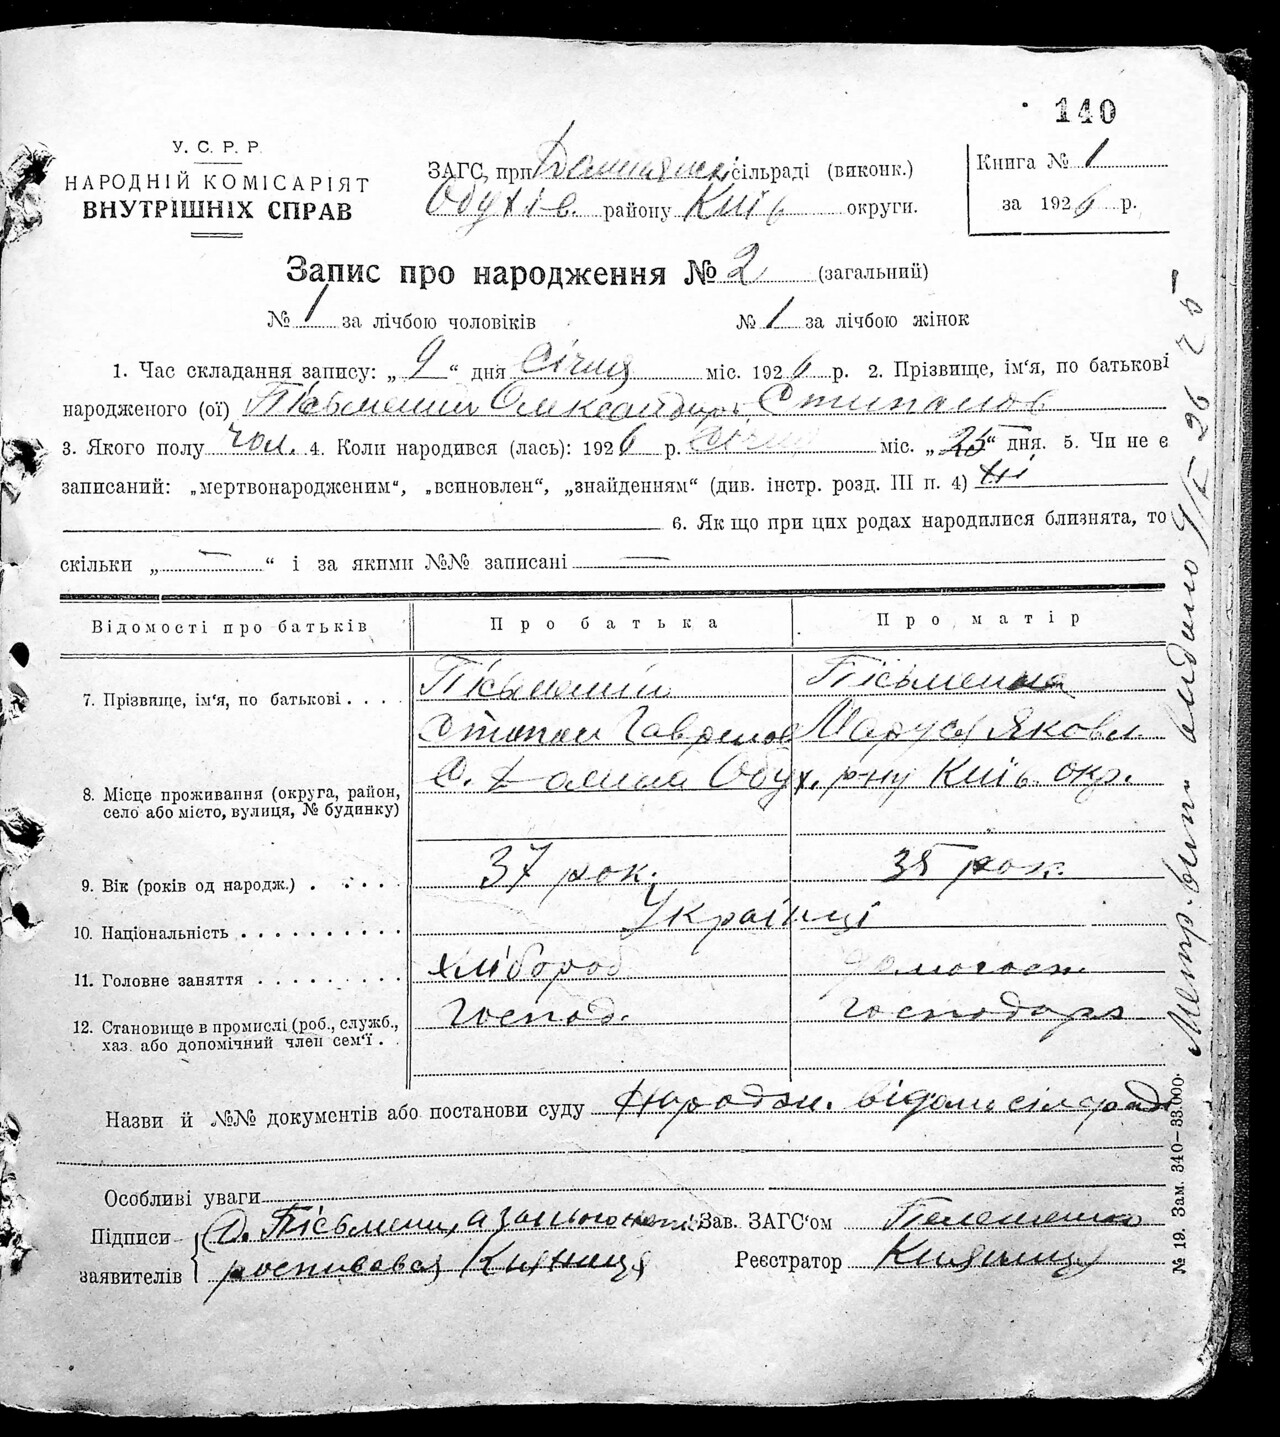 140
У. С. Р. Р.
НАРОДНІЙ КОМІСАРІЯТ
ВНУТРІШНІХ СПРАВ
ЗАГС, при сільраді (виконк.)
Обухів. району Київ округи.
Книга № 1
за 1926 р.
Запис про народження № 2 (загальний)
№ 1 за лічбою чоловіків № 1 за лічбою жінок
1. Час складання запису: „ 9 “ дня Січня міс. 1926 р. 2. Прізвище, ім‘я, по батькові
народженого (ої) Письменний Олександр Стипанов
3. Якого полу чол. 4. Коли народився (лась): 1926 р. Січня міс. „ 25 “ дня. 5. Чи не є
записаний: „мертвонародженим“, „всиновлен“, „знайденням“ (див. інстр. розд. III п. 4) ні
6. Як що при цих родах народилися близнята, то
скільки „ — “ і за якими №№ записані —
Відомості про батьків Про батька Про матір
7. Прізвище, ім‘я, по батькові . . . . Письменній Письменна
Стипан Гаврилов Маруся Яковл
8. Місце проживання (округа, район,
село або місто, вулиця, № будинку)
Обух. рну Київ. окр.
9. Вік (років од народж.) . . . . . 37 рок. 35 рок.
10. Національність . . . . . . . . . . Українці
11. Головне заняття . . . . . . . . . Хлібороб домогосп.
12. Становище в промислі (роб., служб.,
хаз. або допомічний член сем‘ї . .
Господ. господарз
Назви й №№ документів або постанови суду Народж. відомь сілради
Особливі уваги
Підписи
заявителів
С. Письменн, а за нього непис
росписався Княниця
Зав. ЗАГС‘ом
Реєстратор Княниця
№ 19. Зам. 340—33.000.
Метр. вип. видано 9/I 26